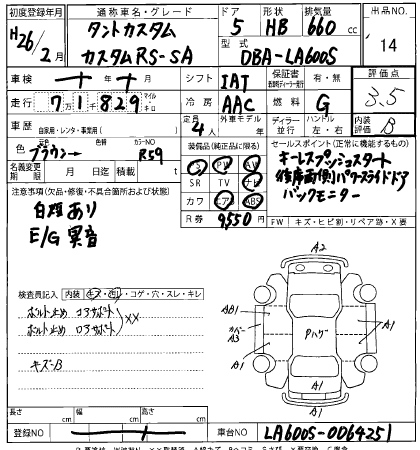 初度登録年月 通称車名・グレード ドア 形状 排気量 出品NO.
H26/2月 タントカスタム 5 HB 660 cc 14
カスタムRS-SA 型式 DBA-LA600S
車検 年 月 シフト IAT 保証書 有・無 評価点
走行 71829 マイル キロ 冷房 AAC 燃料 G 3.5
車歴 自家用・レンタ・事業用( ) 定員 4人 外車モデル年 ディーラー 並行 ハンドル 左・右 内装 評価 B
色 ブラウン 色替 カラーNO R59 装備品(純正品に限る) セールスポイント(正常に機能するもの)
名義変更期限 月 日 積載 t S PW AW キーレスプッシュスタート
注意事項(欠品・修復・不具合箇所および状態) SR TV ナビ 後席両側パワースライドドア
自理あり カワ エアB ABS バックモニター
E/G異音 R券 9550円 FW キズ・ヒビ割・リペア跡・X要交
検査員記入 内装 キズ・汚レ・コゲ・穴・スレ・キレ
ボルト止め コアサポート XX
ボルト止め コアサポート
キズ-B
A2
AB1 A1
カバーA3 Pハゲ
A1 A1
A1
A1
長さ cm 幅 cm 高さ cm
登録NO 車台NO LA600S-0064251